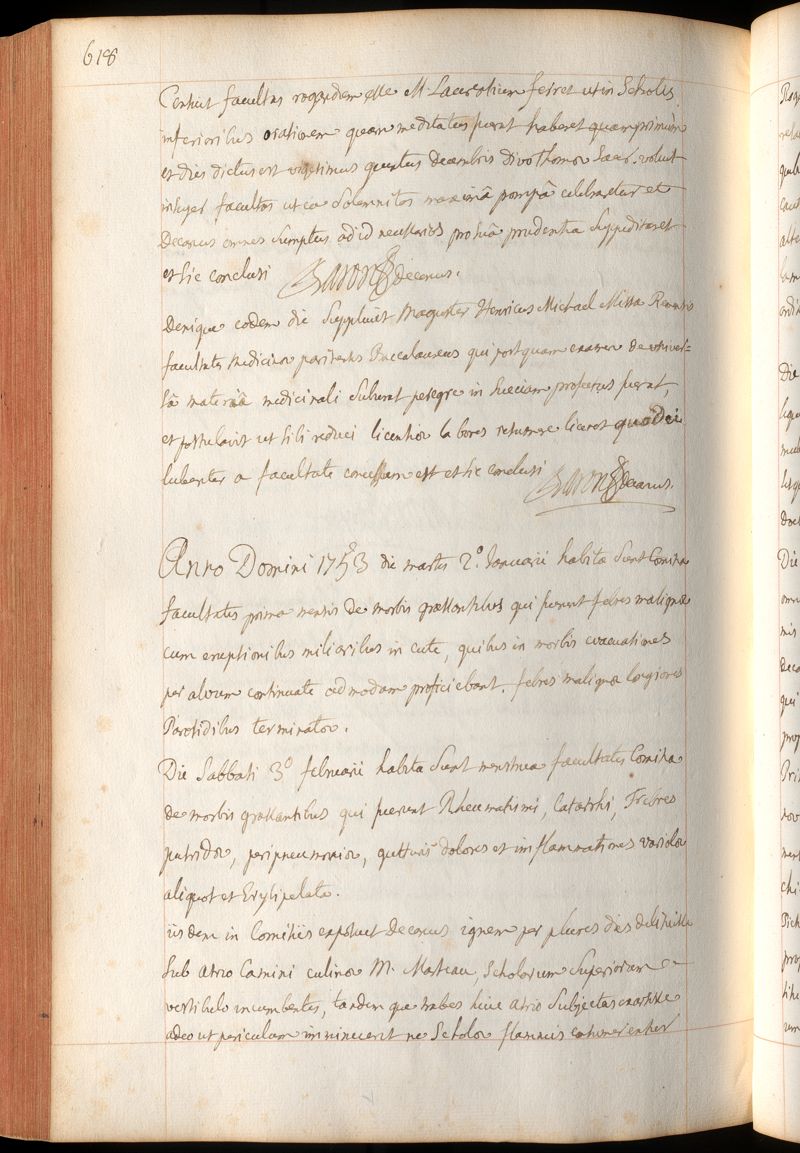 618
Censuit facultas rogandum esse M. Lacrotium ferret ut in Scholis
inferioribus orationem quam meditatus fuerat haberet quamprimum
et dies dictus est vigesimus quartus decembris divo thomæ Sacr. voluit
integer facultas ut ea Solemnitas maximâ pompâ celebraretur et
Decanus omnes sumptus ad id necessarios pro suâ prudentiâ Suppeditaret
et sic conclusi Baron decanus.
Denique eodem die Supplicuit Magister Henricus Michael Missa Remensis
facultatis Medicinæ parisiensis Baccalaureus qui postquam examen de univer=
sâ materiâ medicinali subierat peregre in Sueciam profectus fuerat,
et postulavit ut sibi reduci licentiæ labores resumere liceret quod ei
lubenter a facultate concessum est et sic conclusi Baron decanus.
Anno Domini 1753 die martis 2.° Januarii habita sunt Comitia
facultatis prima mensis De morbis grassantibus qui fuerunt febres malignæ
cum eruptionibus miliaribus in cute, quibus in morbis evacuationes
per alvum continuatæ admodum proficiebant. febres malignæ longiores
Parotidibus terminatæ.
Die Sabbati 3° februarii habita Sunt menstrua facultatis Comitia
de morbis grassantibus qui fuerunt Rheumatismi, Catarrhi, Febres
putridæ, peripneumoniæ, gutturis dolores et inflammationes variolæ
aliquot et Erysipelata.
iisdem in Comitiis exposuit Decanus ignem per plures dies delituisse
Sub atrio Camini culinæ M. Masteau, Scholarum Superiorum
vestibulo incumbentis, tandem que trabes huic atrio Subjectas exarsisse
adeo ut periculum imminuerit ne Scholæ flammis